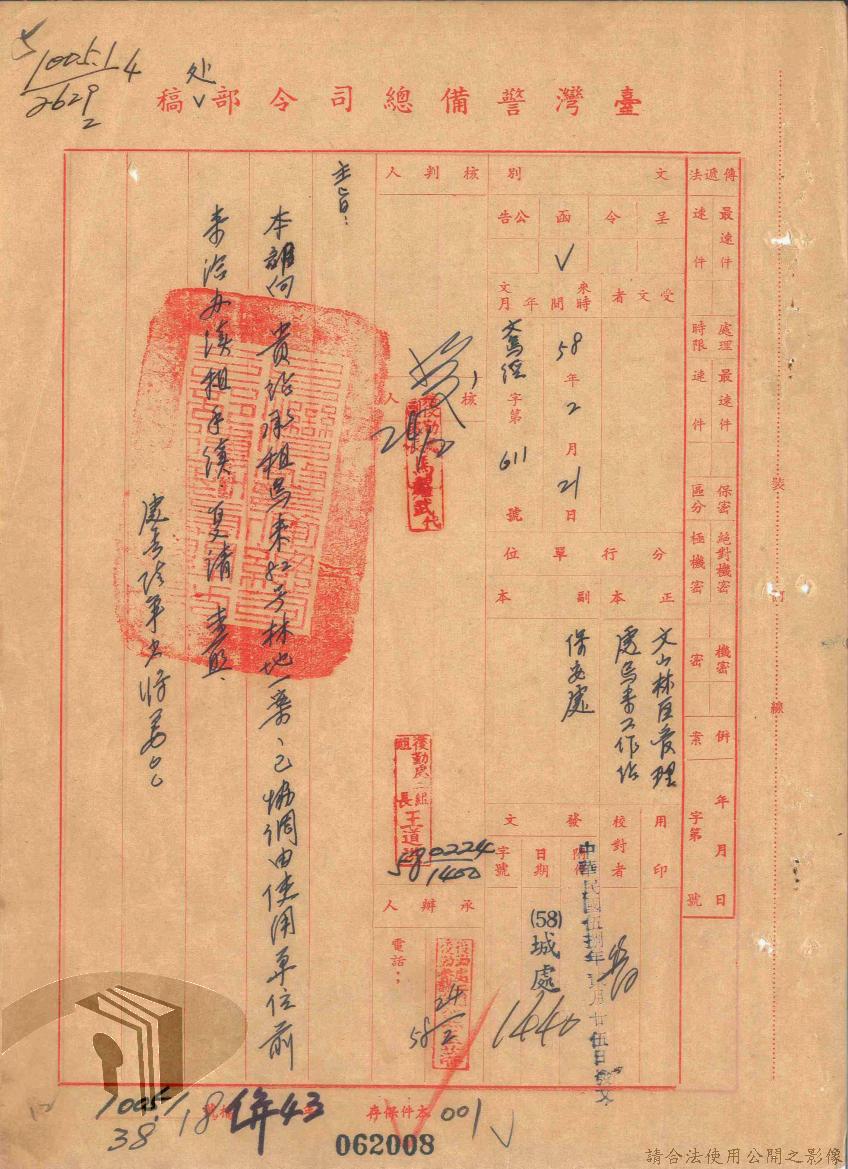 1005.1
4
2629
2
处
臺灣警備總司令部稿
傳遞法
最速件
速件
處理時限
最速件
速件
保密區分
絕對機密
極機密
機密
密
併案
年月日
字第
號
文別
呈
令
函
公告
V
受文者
來文時間
年月
58年2月21日
字第611號
分行單位
正本
副本
文山林區管理
處烏來工作站
保安處
用印
校對者
發文
附件
日期
字號
中華民國伍捌年貳月廿伍日發文
(58)
城處
1440
核判人
核人
後勤處
馬
武
代
後勤處二組
組長
王道
58 0224
1400
承辦人
電話:
24
58 2
主旨:
本部向 貴站承租烏來82号林地一案、已協調由使用單位前
來洽办續租手續、复請 查照、
處長陸軍少將姜〇〇
裝
訂
線
1005.1
38
18
併43
檔號
本件保存
001
062008
請合法使用公開之影像